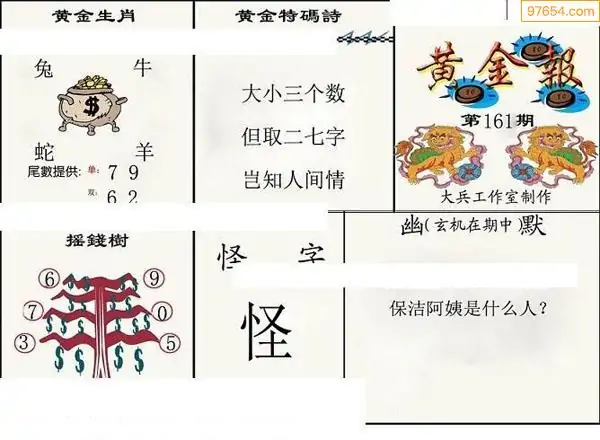 97654.com
黄金生肖
兔 牛
$
蛇 羊
尾數提供: 单: 7 9
双: 6 2
黄金特碼詩
大小三个数
但取二七字
岂知人间情
黄金報
第161期
大兵工作室制作
摇錢樹
6 9
7 0
3 5
怪字
怪
幽(玄机在期中)默
保洁阿姨是什么人?